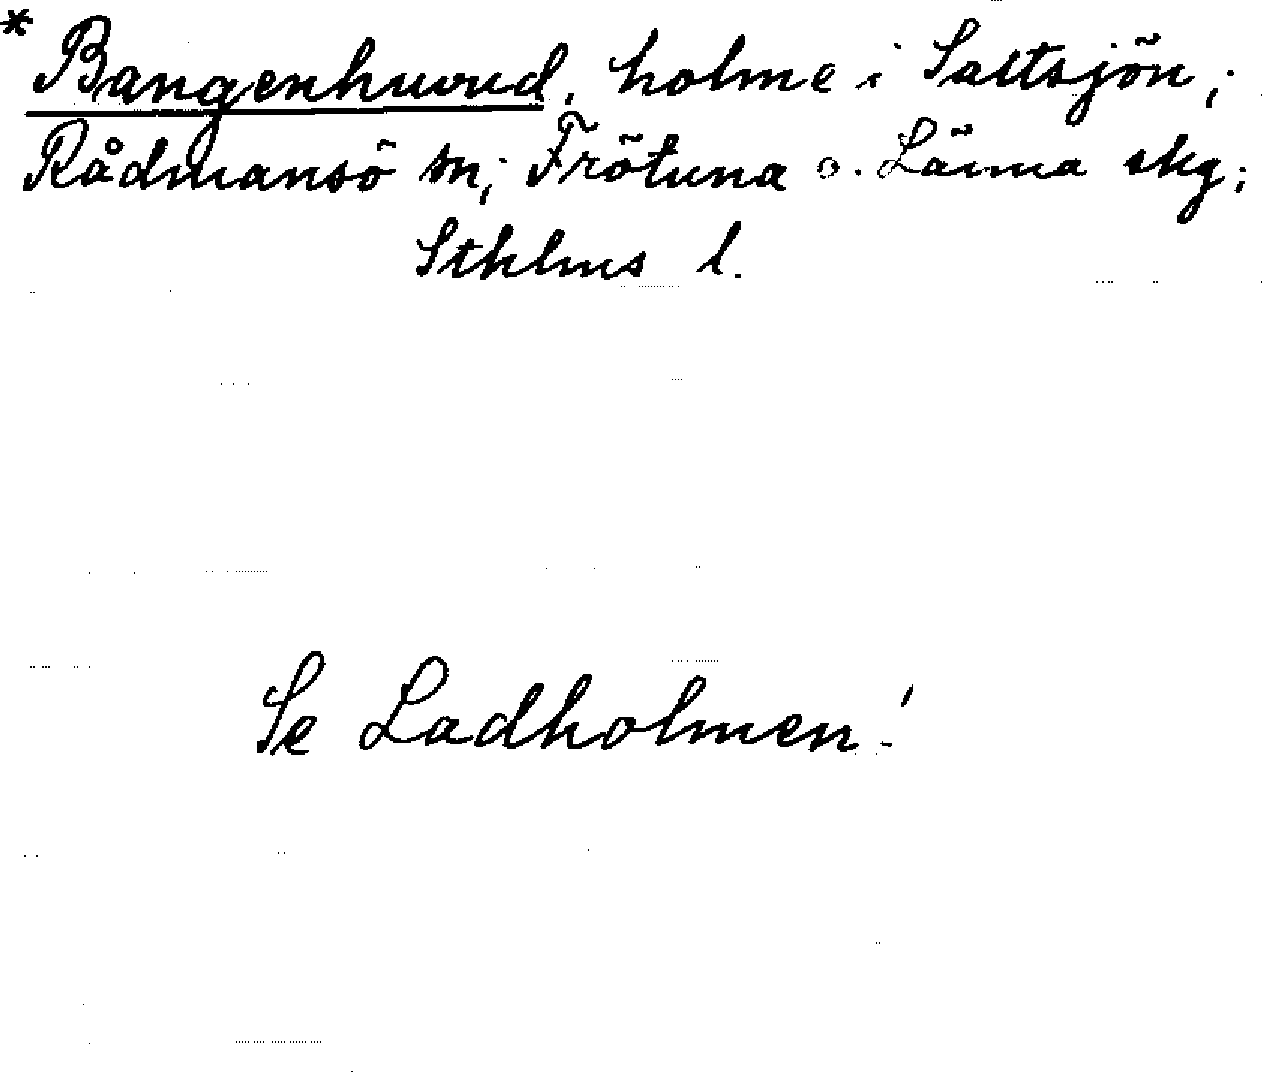 * Bangenhuvud, holme i Saltsjön;
Rådmansö sn; Frötuna o. Länna skg;
Sthlms l.
Se Ladholmen!